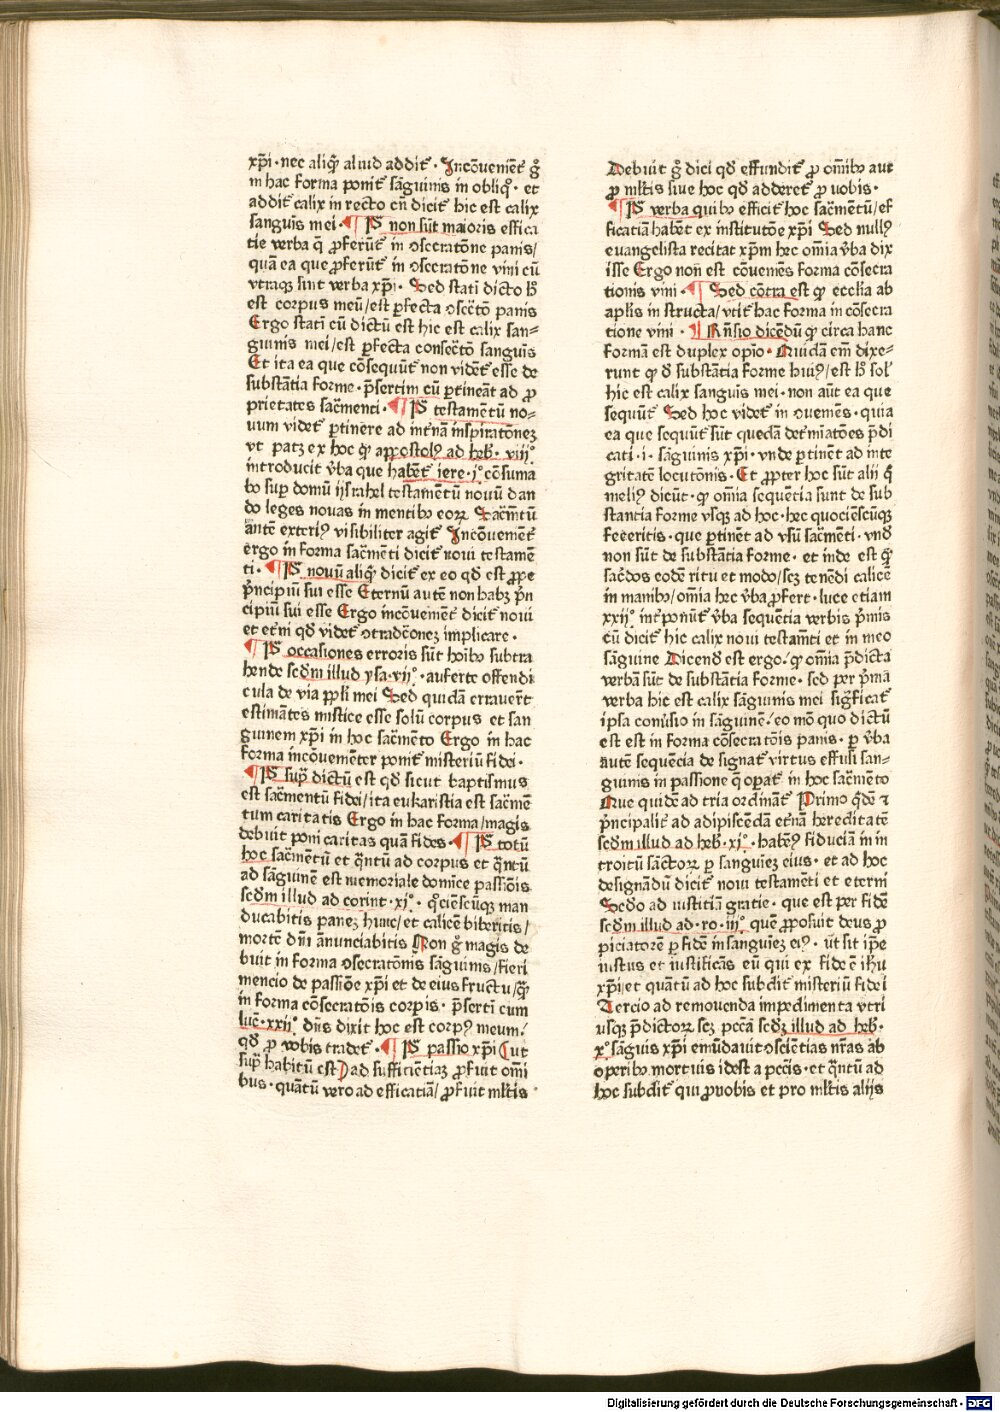 xp̄i · nec aliqͥd aliud addit᷑ · Incōuenienˉt᷑ gͦ
in hac forma ponit᷑ sāguinis in obliqͦ · et
addit᷑ calix in recto cū dicit᷑ hic est calix
sanguīs mei · ¶ P̄ꝭ non sūt maioris effica
tie verba q̄ ꝓferūt᷑ in ↄsecratōne panis/
quā ea que ꝓferūt᷑ in ↄsecratōne vini cū
vtraqꝫ sint verba xp̄i · Sed statī dicto hͦ
est corpus meū/est ꝑfecta ↄsecͣtō panis
Ergo statī cū dictū est hic est calix san⸗
guinis mei/est ꝑfecta consecͣtō sanguīs
Et ita ea que cōsequūt᷑ non vidēt᷑ esse de
substātia forme · p̄sertim cū ꝑtineāt ad ꝓ
prietates sacͣmenti · ¶ P̄ꝭ testamētū no⸗
uum videt᷑ ꝑtinere ad int᷑nā inspiratōneꝫ
vt patꝫ ex hoc qͥ appostolꝰ ad heb̄ · viijͦ
introducit v̄ba que habēt᷑ iere · jͦ cōsuma
bo suꝑ domū ijsrahel testamētū nouū dan
do leges nouas in mentibꝰ eoꝝ Sacͣmtū
autē exteriꝰ visibiliter agit᷑ Incōuenient᷑
ergo in forma sacͣmēti dicit᷑ noui testamē
ti · ¶ P̄ꝭ nouū aliqͥd dicit᷑ ex eo qd̄ est ꝓpe
pͥncipiū sui esse Eternū autē non habꝫ pͥn
cipiū sui esse Ergo incōuenient᷑ dicit᷑ noui
et et᷑ni qd̄ videt᷑ ↄtradcōnēꝫ implicare ·
¶ P̄ꝭ occasiones erroris sūt hoībꝰ subtra
hende scdm̄ illud ysa · vijͦ · auferte offendi
cula de via ppl̄i mei Sed quidā errauert᷑
estimātes mistice esse solū corpus et san
guinem xp̄i in hoc sacͣmēto Ergo in hac
forma incōuenienter ponit᷑ misteriū fidei ·
¶ P̄ꝭ supͣ dictū est qd̄ sicut baptismus
est sacͣmentū fidei/ita eukaristia est sacͣmē
tum caritatis Ergo in hac forma/magis
debuit poni caritas quā fides · ¶ P̄ꝭ totū
hoc sacͣmētū et qͣntū ad corpus et qͣntū
ad sāguinē est memoriale domīce passiōis
scdm̄ illud ad corint · xjͦ · qͦciēscūqꝫ man
ducabitis paneꝫ hunc/et calicē biberitis/
mortē dn̄i ānunciabitis Non gͦ magis de
buit in forma ↄsecratōnis sāguinis/fieri
mencio de passiōe xp̄i et de eius fructu/qͣꝫ
in forma cōsecratōis corpis · p̄sertī cum
luc̄ · xxijͦ dn̄s dixit hoc est corpꝰ meum/
qd̄ ꝓ vobis tradet᷑ · ¶ P̄ꝭ passio xp̄i (ut
supͣ habitū est) ad sufficiētiaꝫ ꝓfuit omī
bus · quātū vero ad efficatiā/ꝓfuit ml̄tis ·
Debuit gͦ dici qd̄ effundit᷑ ꝓ om̄ibꝰ aut
ꝓ ml̄tis siue hoc qd̄ adderet᷑ ꝓ uobis ·
¶ P̄ꝭ verba quibꝰ efficit᷑ hoc sacͣmētū/ef
ficatiā habēt ex institutōe xp̄i Sed nullꝰ
euangelista recitat xp̄m hec om̄ia v̄ba dix
isse Ergo non est cōueniēs forma cōsecra
tionis vini · ¶ Sed cōtra est qͥ ecclīa ab
apl̄is in structa/vtit᷑ hac forma in cōsecra
tione vini · ¶ Rn̄sio dicēdū qͥ circa hanc
formā est duplex opīo · Quidā em̄ dixe⸗
runt qͥ d̄ substātia forme huiꝰ/est hͦ solˉ
hic est calix sanguīs mei · non aūt ea que
sequūt᷑ Sed hoc videt᷑ in ↄueniēs · quia
ea que sequūt᷑ sūt quedā det᷑miatōes p̄di
cati · i · sāguinis xp̄i · vnde ꝑtinēt ad inte
gritatē locutōnis · Et ꝓpter hoc sūt alij qͥ
meliꝰ dicūt · qͥ om̄ia sequētia sunt de sub
stantia forme vsqꝫ ad hoc · hec quociēscūqꝫ
feceritis · que ꝑtinēt ad vsū sacͣmēti · vnd̄
non sūt de substātia forme · et inde est qͥ
sacͣdos eodē ritu et modo/scꝫ tenēdi calicē
in manibꝰ/om̄ia hec v̄ba ꝓfert · luce etiam
xxijͦ int᷑ponūt᷑ v̄ba sequētia verbis pͥmis
cū dicit᷑ hic calix noui testam̄ti et in meo
sāguine Dicend est ergo · qͥ om̄ia p̄dicta
verba sūt de substātia forme · sed per pͥma
verba hic est calix sāguinis mei sigͥficat᷑
ipsa conūsio in sāguinē · eo mō quo dictū
est est in forma cōsecratōis panis · ꝑ v̄ba
autē sequēcia de signat᷑ virtus effusi san⸗
guinis in passione q̄ opat᷑ in hoc sacͣmēto
Que quidē ad tria ordinat᷑ Primo qͥdē ⁊
pͥncipalit᷑ ad adipiscēdā et᷑nā hereditatē
scdm̄ illud ad heb̄ · xjͦ · habētꝭ fiduciā in in
troitū sāctoꝝ ꝑ sanguīeꝫ eius · et ad hoc
designādū dicit᷑ noui testamēti et eterni
Scd̄o ad iustitiā gratie · que est per fidē
scdm̄ illud ad · ro · iijͦ quē ꝓposuit deus ꝓ
piciatorē ꝑ fidē in sanguīeꝫ eiꝰ · ut sit ip̄e
iustus et iustificās eū qui ex fide ē ih̄u
xp̄i/et quātū ad hoc subdit᷑ misteriū fidei
Tercio ad remouenda impedimenta vtri
usqꝫ p̄dictoꝝ scꝫ pcc̄a scd̄ꝫ illud ad heb̄ ·
xͦ sāguis xp̄i emūdauit ↄsciētias nr̄as ab
operibꝰ mortuis idest a pcc̄is · et qͣntū ad
hoc subdit᷑ qui ꝓuobis et pro ml̄tis alijs
Digitalisierung gefördert durch die Deutsche Forschungsgemeinschaft · DFG